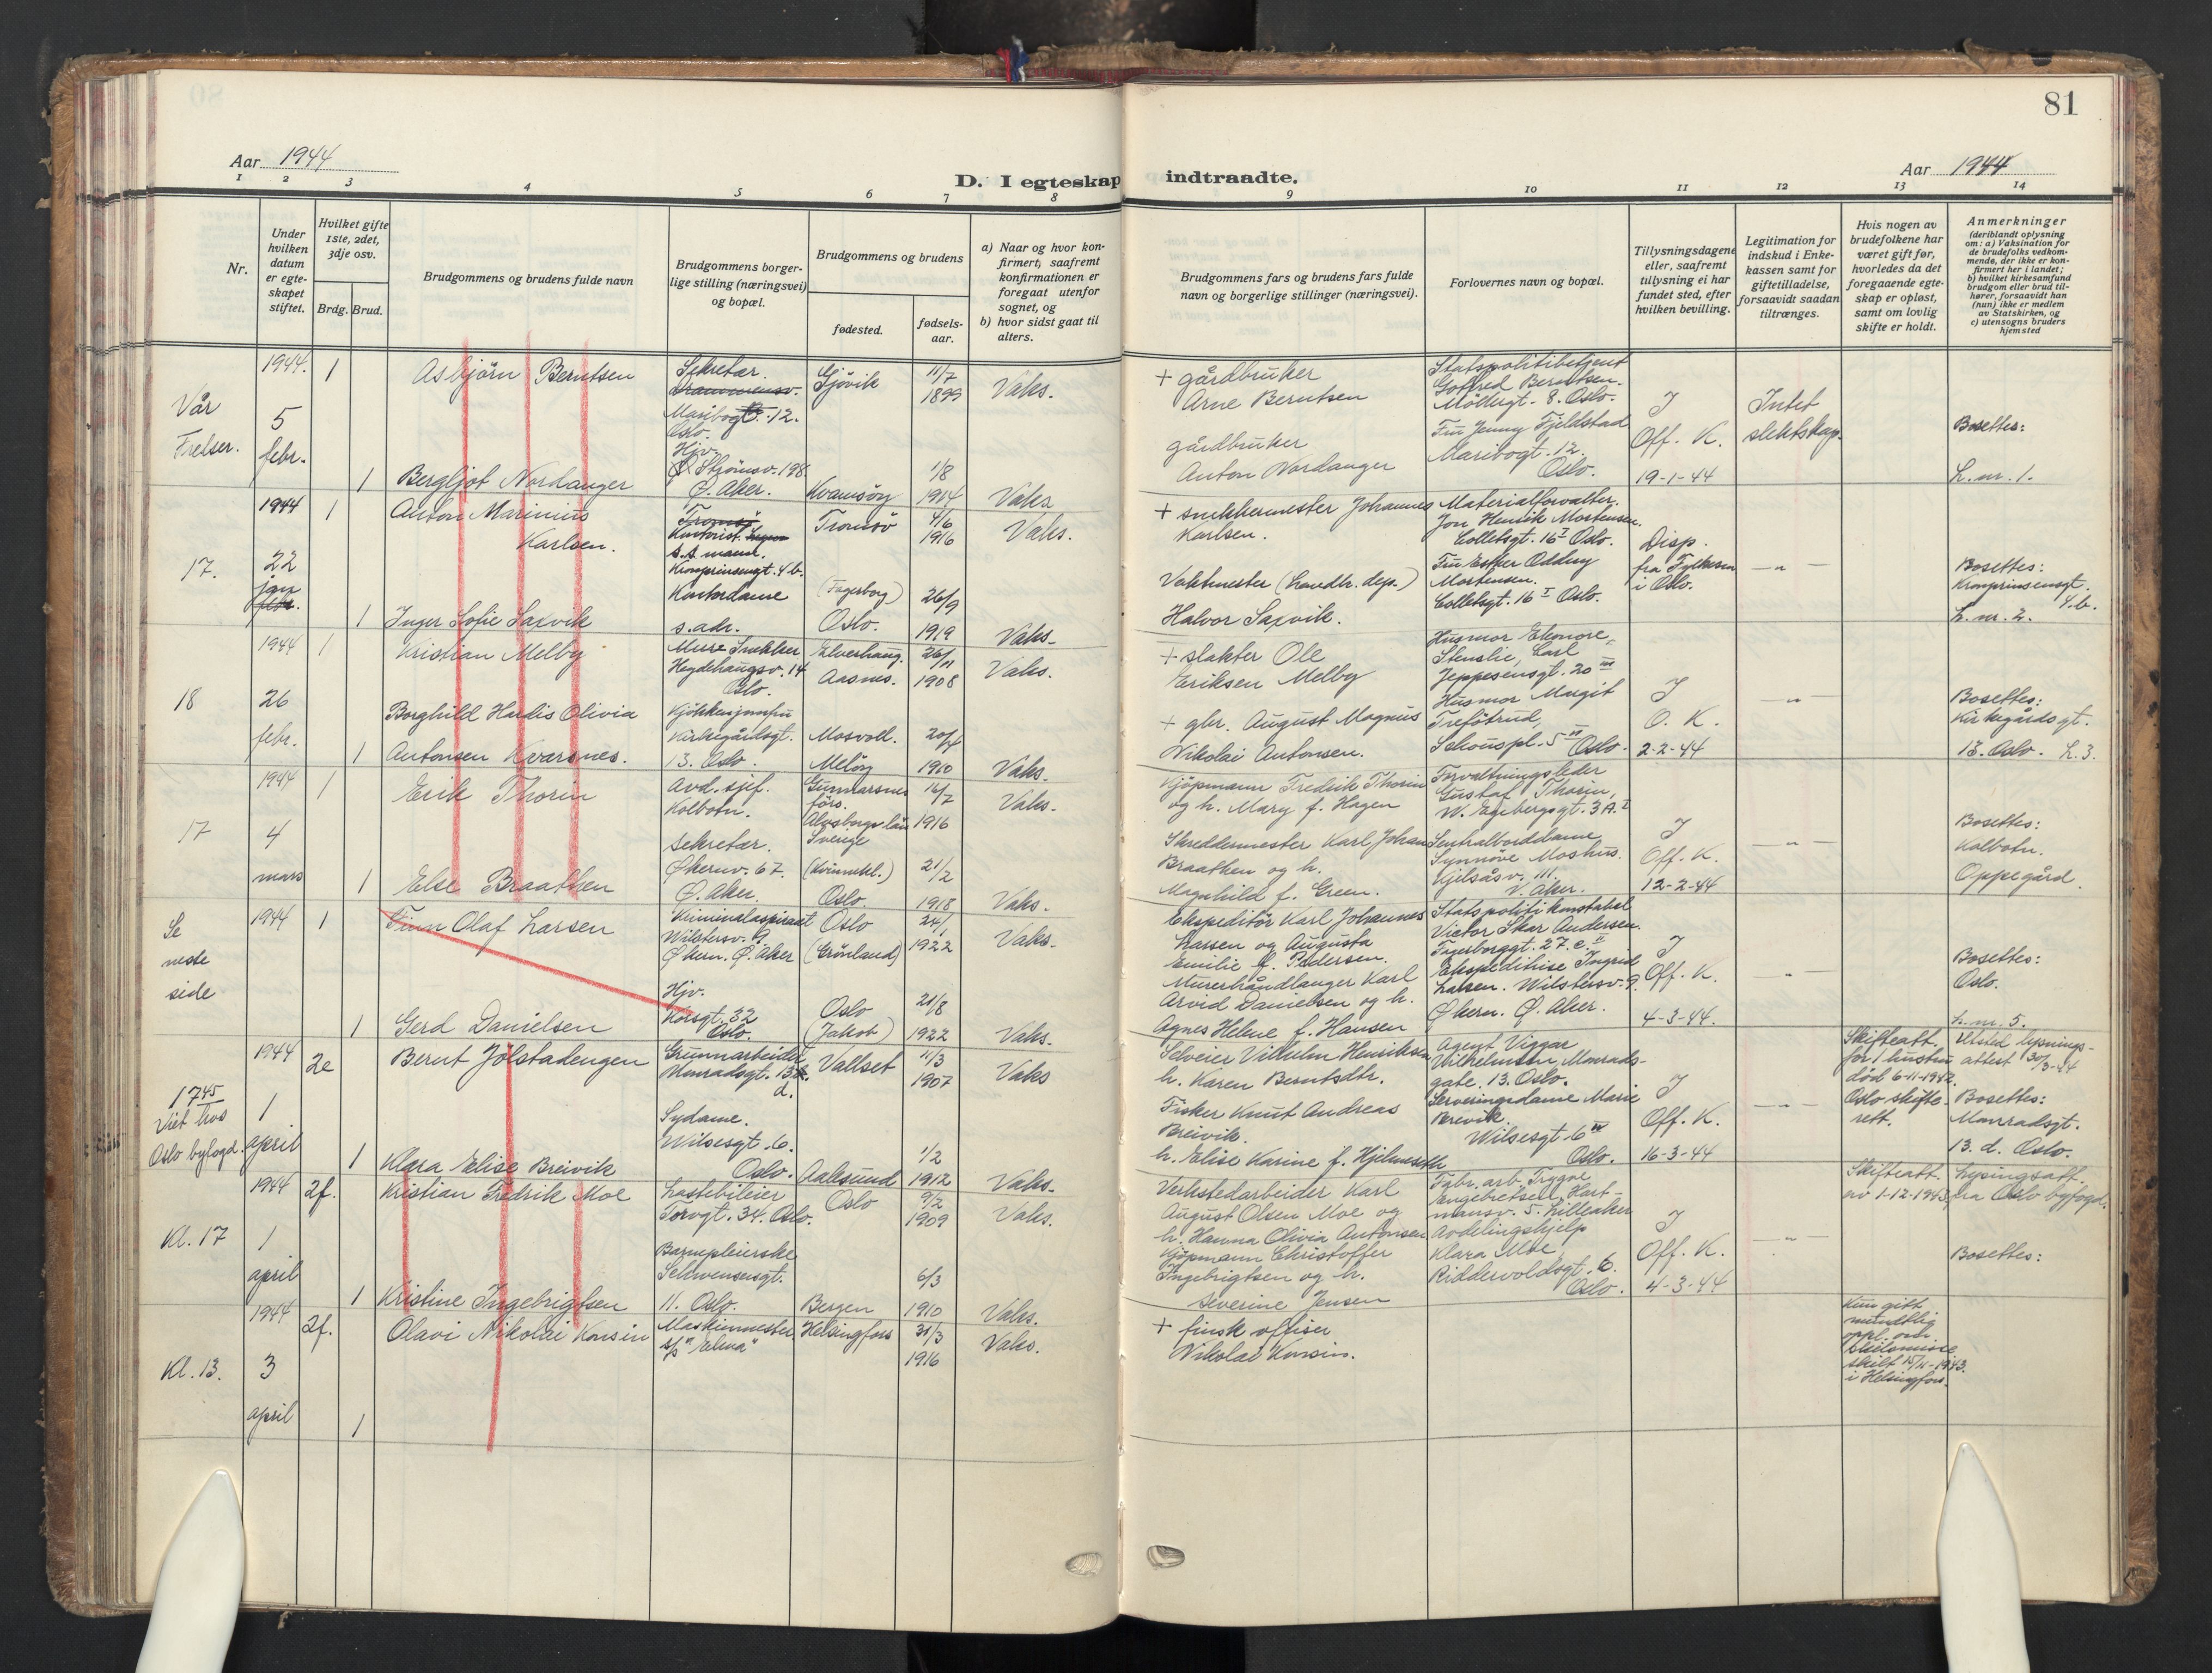 80
81
Aar 1944
D. I egteskap indtraadte.
Aar 1944
1 2 3 4 5 6 7 8 9 10 11 12 13 14
Nr.
Under hvilken datum er egte-skapet stiftet.
Hvilket gifte 1ste, 2det, 3dje osv.
Brdg. Brud.
Brudgommens og brudens fulde navn
Brudgommens borger-lige stilling (næringsvei) og bopæl.
Brudgommens og brudens
fødested.
fødsels-aar.
a) Naar og hvor kon-firmert, saafremt konfirmationen er foregaat utenfor sognet, og
b) hvor sidst gaat til alters.
Brudgommens fars og brudens fars fulde navn og borgerlige stillinger (næringsvei).
Forlovernes navn og bopæl.
Tillysningsdagene eller, saafremt tilysning ei har fundet sted, efter hvilken bevilling.
Legitimation for indskud i Enke-kassen samt for giftetilladelse, forsaavidt saadan tiltrænges.
Hvis nogen av brudefolkene har været gift før, hvorledes da det foregaaende egte-skap er opløst, samt om lovlig skifte er holdt.
Anmerkninger
(deriblandt oplysning om: a) Vaksination for de brudefolks vedkom-mende, der ikke er kon-firmert her i landet;
b) hvilket kirkesamfund brudgom eller brud til-hører, forsaavidt han (hun) ikke er medlem av Statskirken, og
c) utensogns bruders hjemsted
Vår Frelser.
1944.
5
febr.
1
Asbjörn Berntsen
Sekretær.
Drammensv.
Maribogt. 12.
Oslo.
Gjövik
11/7
1899
Vaks.
+ gårdbruker
Arne Berntsen
Statspolitibetjent
Gotfred Berntsen.
Möllergt. 8. Oslo.
Fru Jenny Fjeldstad
Maribogt. 12.
Oslo.
J
Off. K.
19-1-44
Intet
slektskap.
Bosettes:
L. nr. 1.
1
Bergljot Nordanger
Hjv.
Ö. Aker.
Kvamsöy
1/8
1914
Vaks
gårdbruker
Anton Nordanger
17.
1944
22
jan
febr.
1
Anton Marinius
Karlsen.
Tromsö
Kontorist.
Kronprinsensgt. 4 b.
Tromsö
4/6
1916
Vaks.
+ snekkermester Johannes
Karlsen.
Materialforvalter.
Jon Henrik Mortensen.
Colletsgt. 16 I Oslo.
Fru Esther Oddny
Mortensen.
Colletsgt. 16 I Oslo.
Disp.
fra Fylkesm
i Oslo.
— " —
Bosettes:
Kronprinsensgt.
4 b.
L. nr. 2.
1
Inger Sofie Saxvik
Kontordame
s. adr.
(Fagerborg)
Oslo.
26/9
1919
Vaks.
Vaktmester (Landbr. dep.)
Halvor Saxvik.
18
1944
26
febr.
1
Kristian Melby
Heydehaugsv. 14
Oslo.
Elverhaug.
Aasnes.
26/11
1908
Vaks.
+ slakter Ole
Eriksen Melby
Husmor Elenore
Stenslie, Carl
Jeppesensgt. 20 III
Husmor Margit
Schouspl. 5 II Oslo.
J
O. K.
2-2-44
— " —
Bosettes:
Kirkegårdsgt.
13. Oslo. L. 3.
1
Borghild Hardis Olivia
Antonsen Kvarsnes.
Kirkegårdsgt.
13. Oslo.
Mosvoll.
Melöy
20/4
1910
Vaks.
+ gbr. August Magnus
Nikolai Antonsen.
17
1944
4
mars
1
Erik Thorin
Avd. sjef.
Kolbotn.
Gunnarsnes
förs.
Älvsborgs län
Sverige
14/7
1916
Vaks.
Kjöpmann Fredrik Thorin
og h. Mary f. Hagen
Forvaltningsleder
Gustaf Thorin,
W. Egebergsgt. 3 A. I
Sentralborddame
Synnöve Moshus.
Kjelsåsv. 111.
V. Aker.
J
Off. K.
12-2-44
— " —
Bosettes:
Kolbotn.
Oppegård.
1
Else Braathen
Sekretær.
Økernv. 67.
Ø. Aker.
(Kvinnekl.)
Oslo.
21/2
1918
Vaks.
Skreddermester Karl Johan
Braathen og h.
Magnhild f. Green.
Se
neste
side
1944
1
Finn Olaf Larsen
Kriminalaspirant
Wilstersv. 9
Økern. Ø. Aker
Oslo
(Grönland)
24/1
1922
Vaks.
Ekspeditör Karl Johannes
Larsen og Augusta
Emilie f. Pedersen.
Statspolitikonstabel
Victor Skar Andersen.
Fagerborggt. 27. c. II
Ekspeditrise Ingrid
Larsen. Wilstersv. 9.
Økern. Ø. Aker.
J
Off. K.
4-3-44.
— " —
Bosettes:
Oslo.
L. nr. 5.
1
Gerd Danielsen
Hjv.
Korsgt. 32
Oslo.
Oslo
(Jakob)
21/8
1922
Vaks.
Murerhåndlanger Karl
Arvid Danielsen og h.
Agnes Helene f. Hansen
17 45
Viet hos
Oslo byfogd.
1944
1
april
2e
Bernt Jölstadengen
Grunnarbeider
Monradsgt. 13
d.
Vallset
11/3
1907
Vaks
Selveier Vilhelm Henriksen
h. Karen Berntsdtr.
Agent Viggar
Wilhelmsen, Monrads-
gate. 13. Oslo.
Serveringsdame Marie
Breivik
Wilsesgt. 6 III
Oslo.
J
Off. K.
16-3-44
— " —
Skifteatt.
for 1 hustru
död 6-11-1942.
Oslo skifte-
rett.
Utsted lysnings-
attest 30/3-44
Bosettes:
Monradsgt.
13. d. Oslo.
1
Klara Elise Breivik
Sydame.
Wilsesgt. 6.
Oslo.
Aalesund
1/2
1912
Vaks.
Fisker Knut Andreas
Breivik.
h. Elise Karine f. Hjelmeseth
Kl. 17
1944
1
april
2f.
Kristian Fredrik Moe
Lastebileier
Torvgt. 34. Oslo.
Oslo
9/2
1909
Vaks.
Verkstedarbeider Karl
August Olsen Moe og
h. Hanna Olivia Antonsen
Fabr. arb. Tryggve
Engebretsen, Hart-
mansv. 5. Lilleaker
Avdelingshjelp
Klara Moe,
Riddervoldsgt. 6.
Oslo.
J
Off. K.
4-3-44
— " —
Skifteatt.
av 1-12-1943
Lysingsatt.
fra Oslo byfogd.
Bosettes:
1
Kristine Ingebrigtsen
Barnepleierske
Schwensensgt.
11. Oslo.
Bergen
6/3
1910
Vaks.
Kjöpmann Christoffer
Ingebrigtsen og h.
Severine Jensen
Kl. 13.
1944
3
april
2f.
Olavi Nikolai Konsin
Maskinmester
s/s "Elena"
Helsingfors
31/3
1916
Vaks.
+ finsk offiser
Nikolai Konsin.
Kun gitt
muntlig
oppl. om
skilsmisse
skilt 15/11-1943.
i Helsingfors.
1